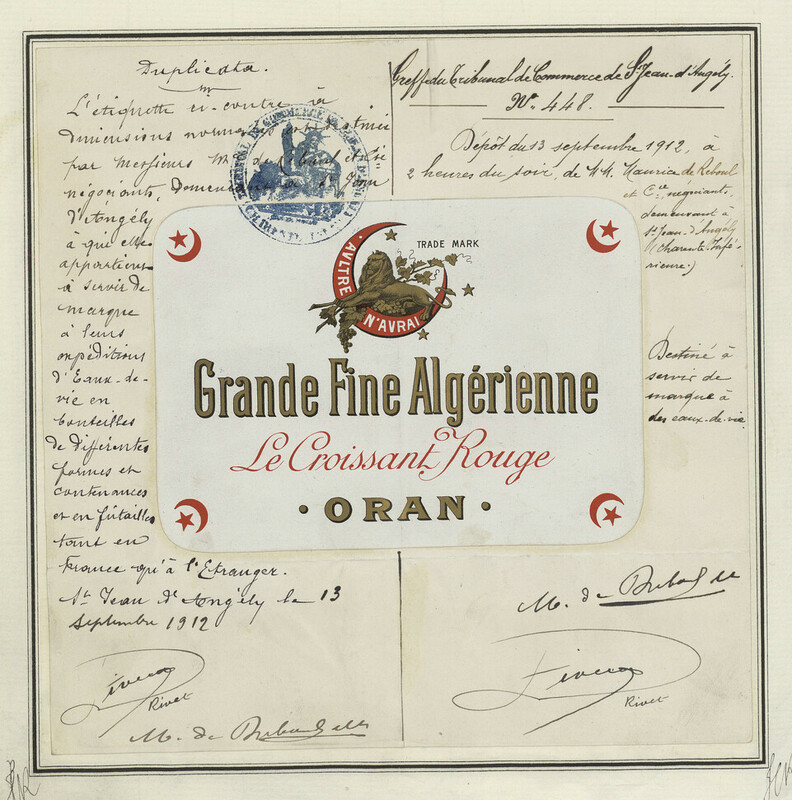 Duplicata.
L'étiquette ci-contre à
dimensions
par Messieurs M. de
négociants,
d'Angély
à qui elle
appartient
à servir de
marque
à leurs
expéditions
d'Eaux-de-
vie en
bouteilles
de différentes
formes et
contenances
et en futailles
tant en
France qu'à l'Etranger.
St Jean d'Angély le 13
septembre 1912
Rivet
M. de
Greffe du Tribunal de Commerce de St Jean-d'Angély.
No 448.
Dépôt du 13 septembre 1912, à
2 heures du soir, de MM. Maurice de Reboul
et Cie, négociants,
demeurant à
St Jean-d'Angély
(Charente-Infé-
rieure.)
Destiné à
servir de
marque à
des eaux-de-vie.
M. de
Rivet
TRADE MARK
AVLTRE
N'AVRAI
Grande Fine Algérienne
Le Croissant Rouge
· ORAN ·